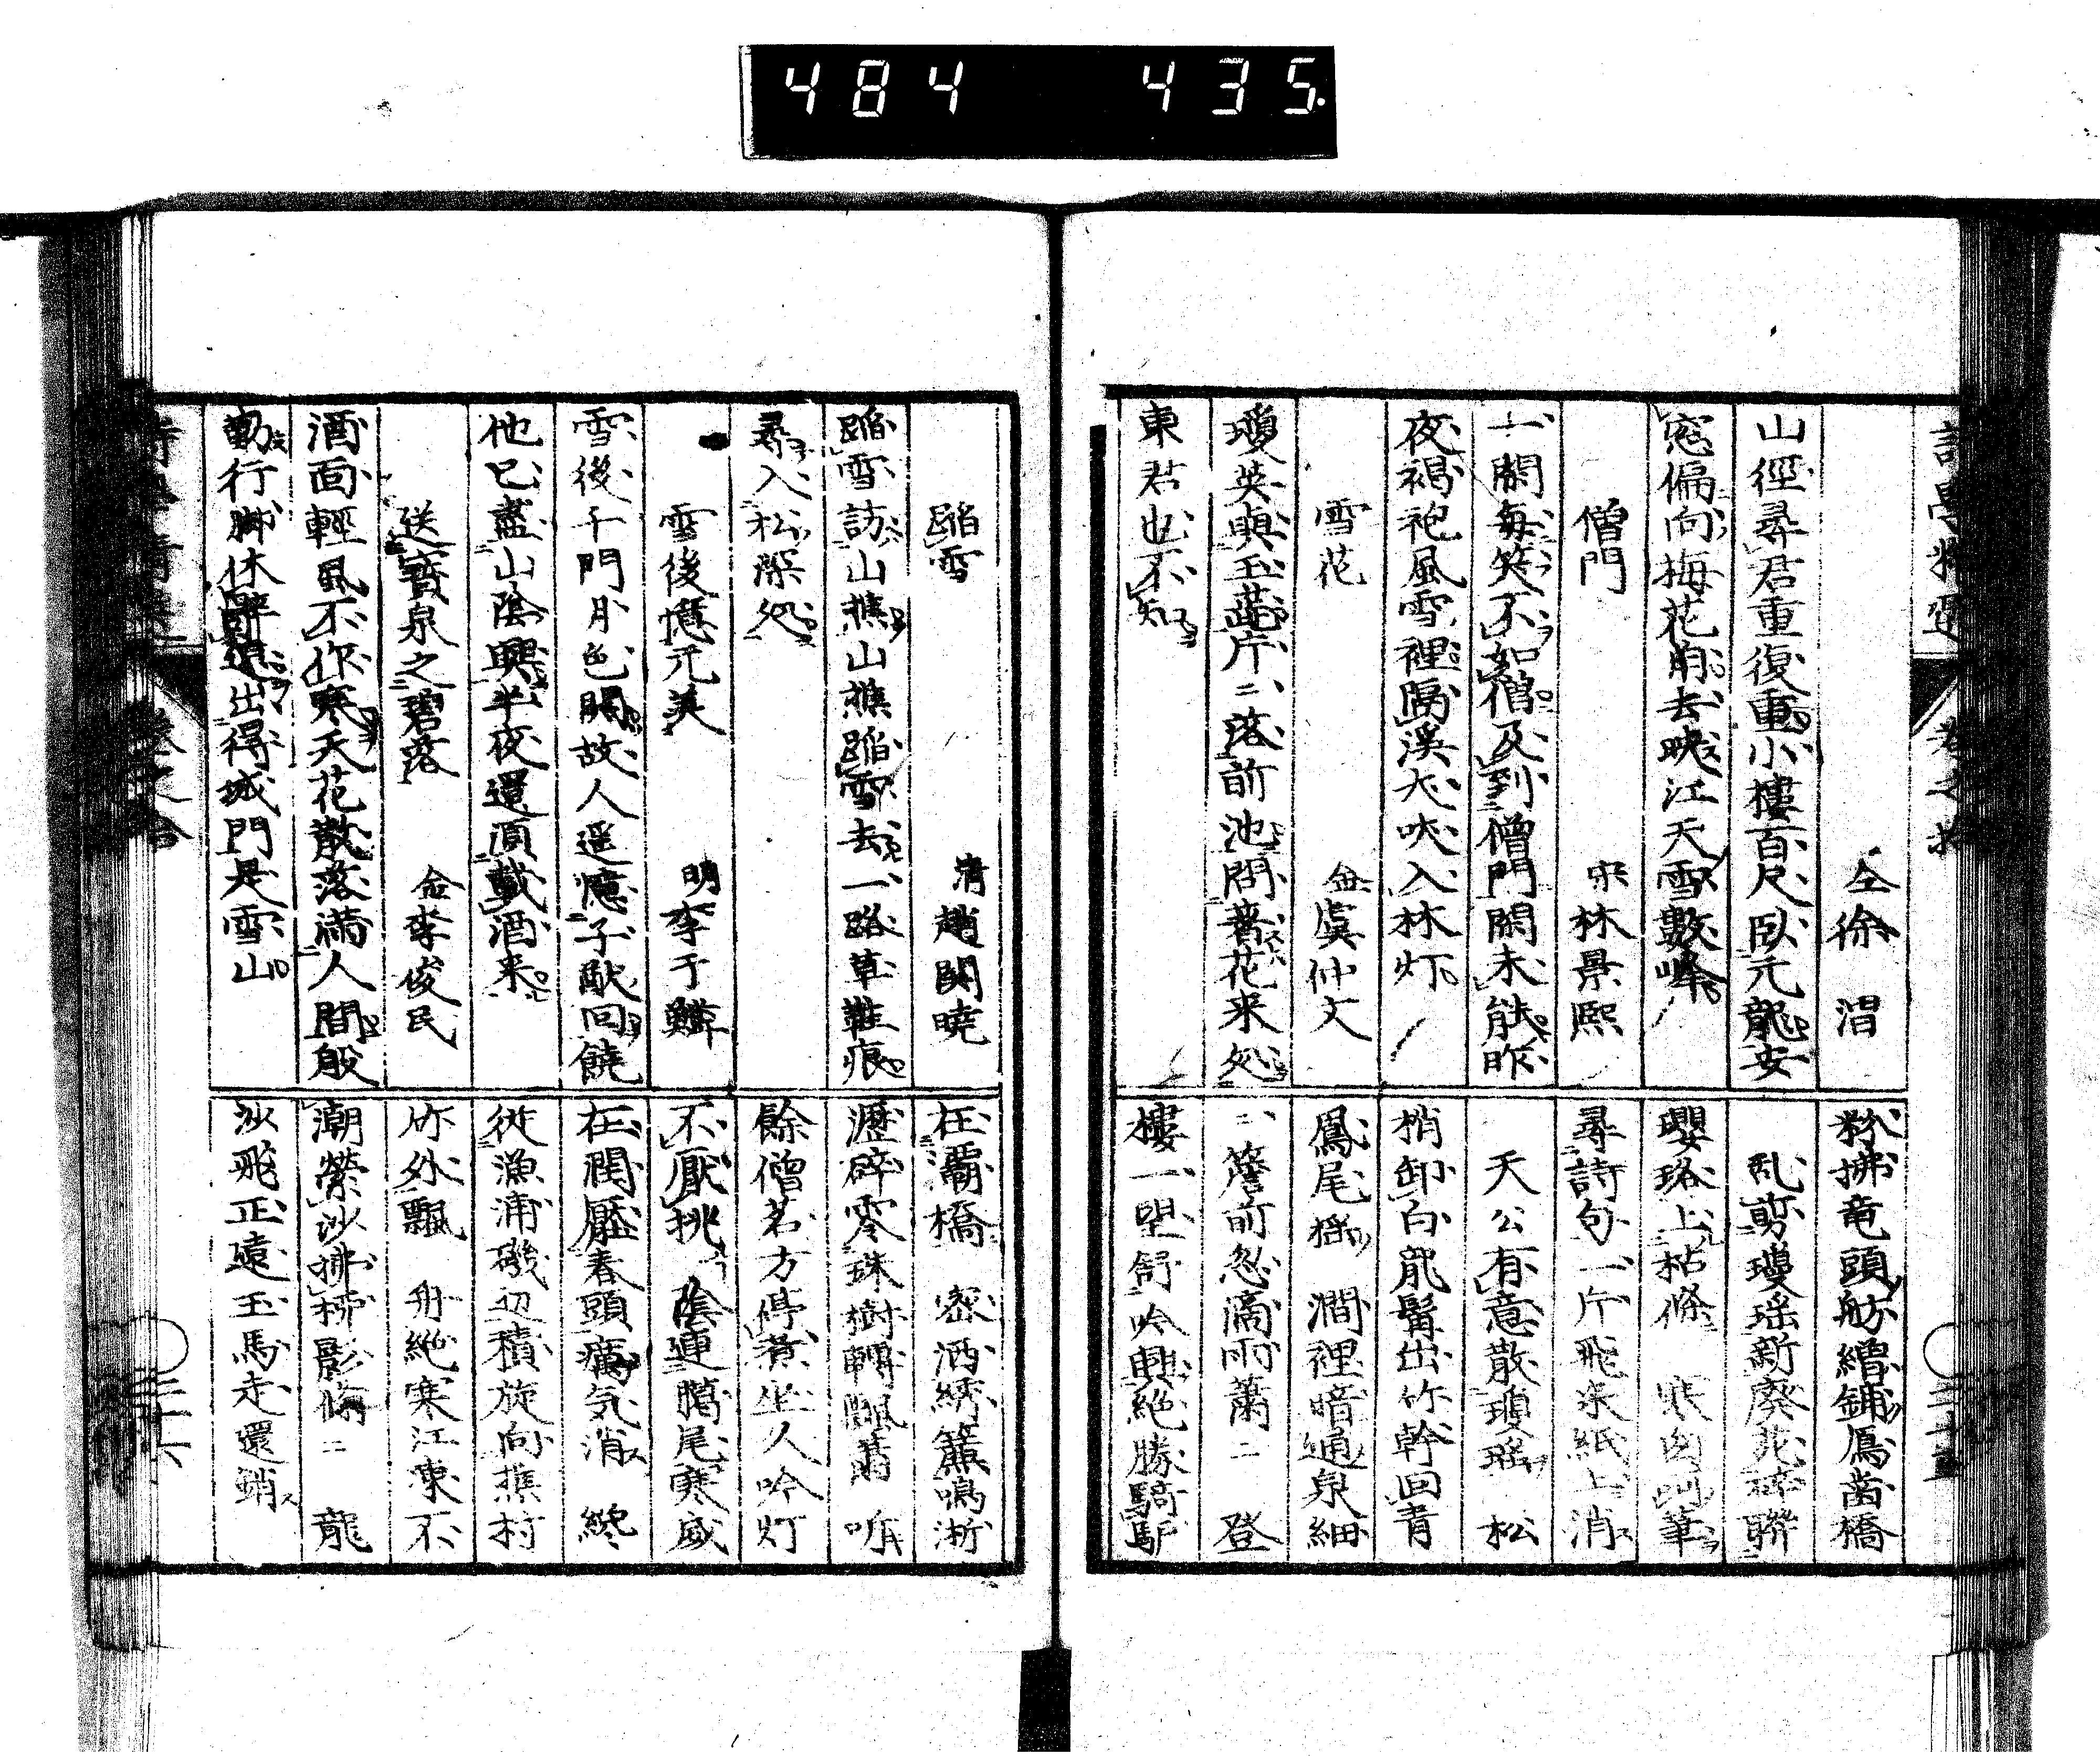 484 435
仝徐 渭
山徑尋君重復重小樓百尺臥元龍安
窓偏向梅花月去映江天雪數峰
僧門 宋林景熙
一關每笑不如僧及到僧門關未能昨
夜褐袍風雪裡隔溪犬吠入林灯
雪花 金虞仲文
瓊英與玉蕋片二落前池問著花来処
東君也不知
粉拂竜頭舫繒鋪鳫齒橋
乱剪瓊瑶新 花 聯
瓔珞上粘條 寒 筆
尋詩句一片飛来紙上消
天公有意散瓊瑶 松
梢卸白龍髯出竹幹回青
鳳尾揺 澗裡暗通泉細
二簷前忽滴雨蕭二 登
樓一望舒吟興絶勝騎馿
蹈雪 清趙関曉
蹈雪訪山樵山樵蹈雪去一路草鞋痕
尋入松深処
雪後憶元美 明李于鱗
雪後千門月色開故人遥憶子猷回饒
他已盡山陰興半夜還須載酒来
送寳泉之碧落 金李俊民
洒面輕風不作寒天花散落滿人間般
勤行脚休辞遠出得城門是雪山
在灞橋 密洒綉簾鳴淅
瀝碎零珠樹轉飄蕭 听
餘僧茗方停煮坐人吟灯
不厭挑 陰連臈尾寒威
在潤壓春頭癘気消 纔
従漁浦磯辺積旋向樵村
竹外飄 舟絶寒江凍不
潮縈沙拂 影翛二 龍
沙飛正遠玉馬走還銷